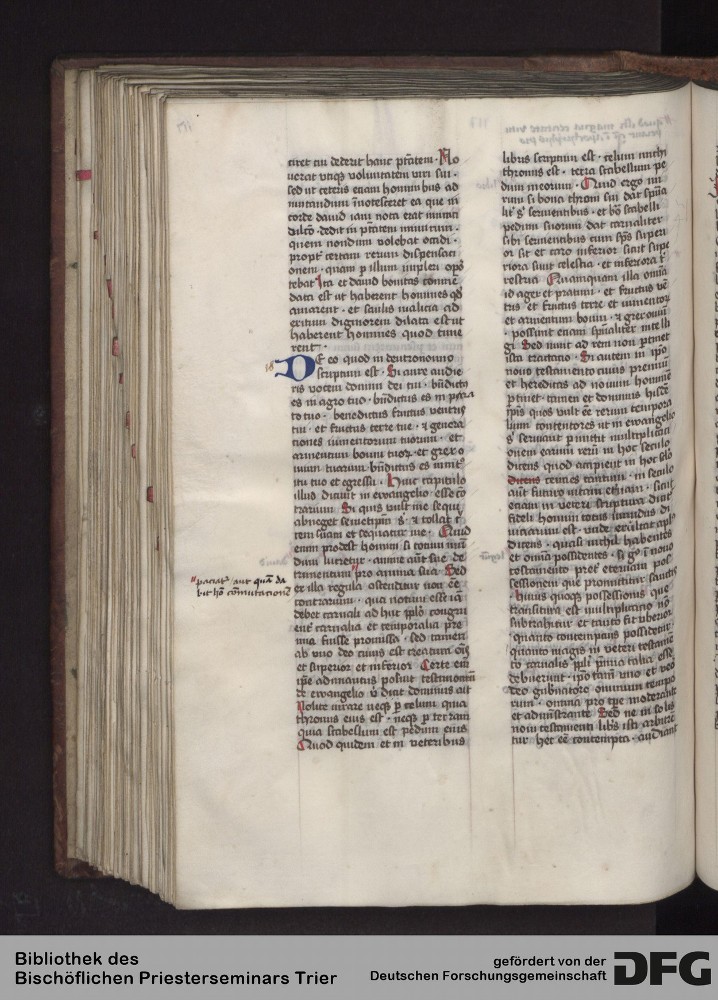 ciret cui dederit hanc ptātem · No
uerat utiqȝ voluntatem viri sui ·
sed ut ceteris eciam hominibus ad
mirandum īnotesceret ea que in
corde dauid iam nota erat inimici
dilcō · dedit in ptātem inimicum ·
quem nondum volebat occidi ·
propt' certam rerum dispensaci
onem · quam p illum impleri opꝰ
tebat Ita et dauid bonitas cōmē
data est ut haberent homines qd
amarent · et saulis malicia ad
exitum digniorem dilata est ut
haberent homines quod time
rent ·
18
DE eo quod in deutronomio
scriptum est · Si aure audie
ris vocem domini dei tui · bn̄dictꝰ
es in agro tuo · bn̄dictus es in
to tuo · benedictus fructus ventris
tui · et fructus terre tue · et genera
tiones iumentorum tuorum · et
armentum bouum tuoꝝ · et grex o
uium tuarum bn̄dictus es in
itu tuo et egressu · Huic capitulo
illud dicunt in ewangelio esse cō
trarium Si quis vult me sequi
abneget semetipm̄ sibi et tollat c
rem suam et sequatur me · Quid
enim prodest homini si totum mū
dum lucretur · anime aūt sue de
trimentum pro anima sua · Sed
ex illa regula ostenditur non eē
contrarium · qua notum esse iā
debet carnali adhuc pplo congru
ent' carnalia et temporalia pre
mia fuisse promissa · sed tamen
ab uno deo cuius est creatura oīs
et superior et inferior Certe em̄
ipe adimantus posuit testimoniū
de ewangelio ubi dicit dominus ait
Nolite iurare neqȝ p celum quia
thronus eius est · neqȝ p terram
quia scabellum est pedum eius
Quod quidem et in veteribus
paciatꝰ aut quā da
bit hō cōmutationē
libris scriptum est · celum michi
thronus est · terra scabellum pe
dum meorum · Quid ergo mi
rum si bona throni sui dat spūa
lit' seruientibus · et bona scabelli
pedum suorum dat carnaliter
sibi seruientibus cum spūs superi
or sit et caro inferior sicut supe
riora sunt celestia · et inferiora t'
restria Quamquam illa omnia
id ager et pratum · et fructus vē
tris et fructus terre et iumentorum
et armentum bouum · et grex ouium
· possunt eciam spūaliter intelli
gi Sed nunc ad rem non ptinet
ista tractatio · Si autem in ipo
nouo testamento cuius premium
et hereditas ad nouum hominē
ptinet · tamen et dominus hisdē
ipis quos vult eē rerum tempora
lium contentores ut in ewangelio
seruiant pmittit multiplicaci
onem earum rerū in hoc seculo
dicens quod accipient in hoc sclo
dicens centies tantum · in seculo
aūt futuro vitam eternam · sicut
eciam in veteri scriptura dicit
fideli homini totus mundus di
uiciarum est · unde exultat aplūs
dicens · quasi nichil habentes
et omia possidentes · si gͦ in nouo
testamento preter eternam pos
sessionem que promittitur sanctis
· huius quoqȝ possessionis que
transitura est multiplicatio nō
subtrahitur et tanto fit uberior
quanto contemptius possidetur ·
quanto magis in veteri testamē
to carnalis ppli premia talia esse
debuerunt · ipo tam̄ uno et vero
deo gubnatore omnium tempo
rum · omnia pro tpe moderante
et administrante Sed ne in solis
noui testamenti libris isti arbitrē
tur hec eē contempta · audiant
Bibliothek des
Bischöflichen Priesterseminars Trier
gefördert von der
Deutschen Forschungsgemeinschaft
DFG